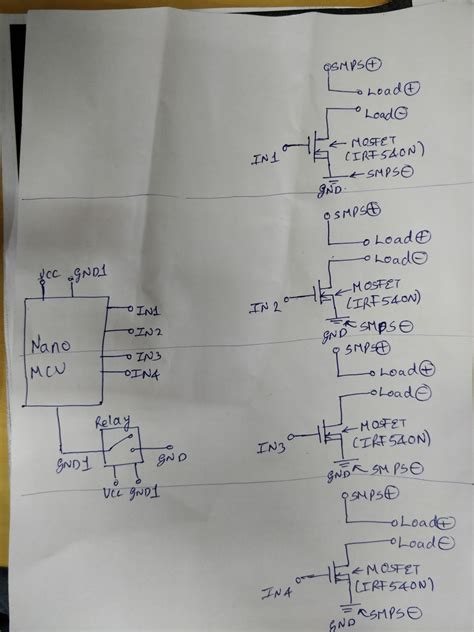 SMPS⊕
Load⊕
Load⊖
IN1
MOSFET
(IRF540N)
SMPS⊖
GND
SMPS⊕
Load⊕
Load⊖
IN2
MOSFET
(IRF540N)
GND
SMPS⊖
VCC
GND1
IN1
IN2
IN3
IN4
Nano
MCU
Relay
GND1
GND
VCC
GND1
SMPS⊕
Load⊕
Load⊖
IN3
MOSFET
(IRF540N)
GND
SMPS⊖
SMPS⊕
Load⊕
Load⊖
IN4
MOSFET
(IRF540N)
GND
SMPS⊖